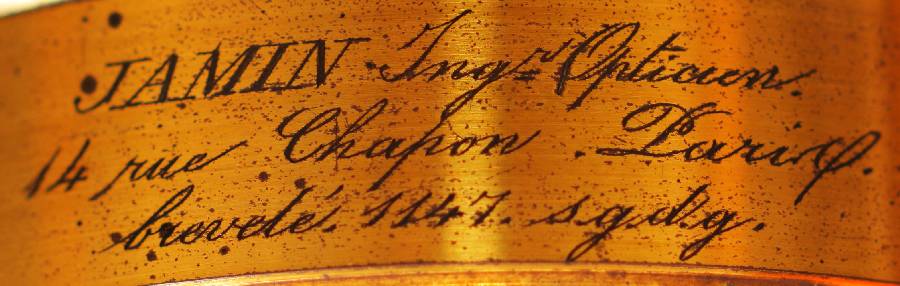 JAMIN Ingr Opticien.
14 rue Chapon. Paris.
breveté. 1147. s.g.d.g.